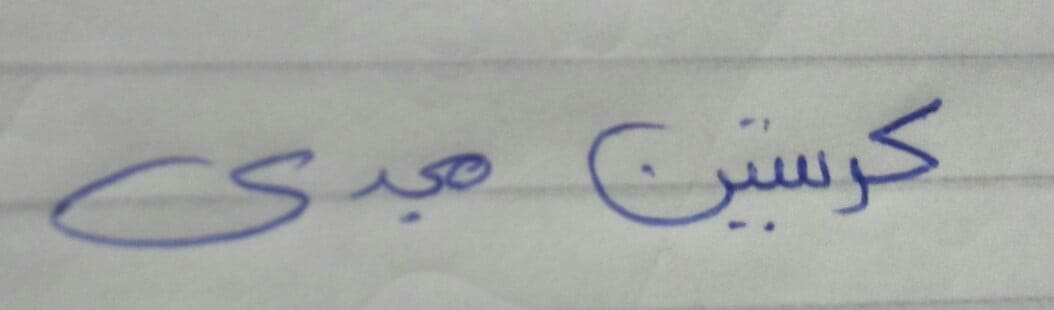 كرستين مجدى